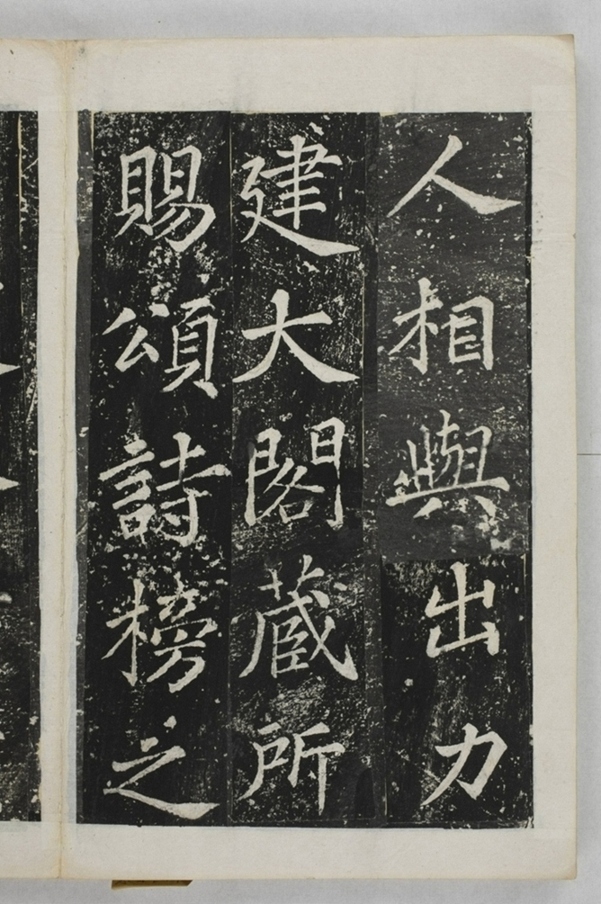 人相與出力
建大閣蔵所
賜頌詩榜之